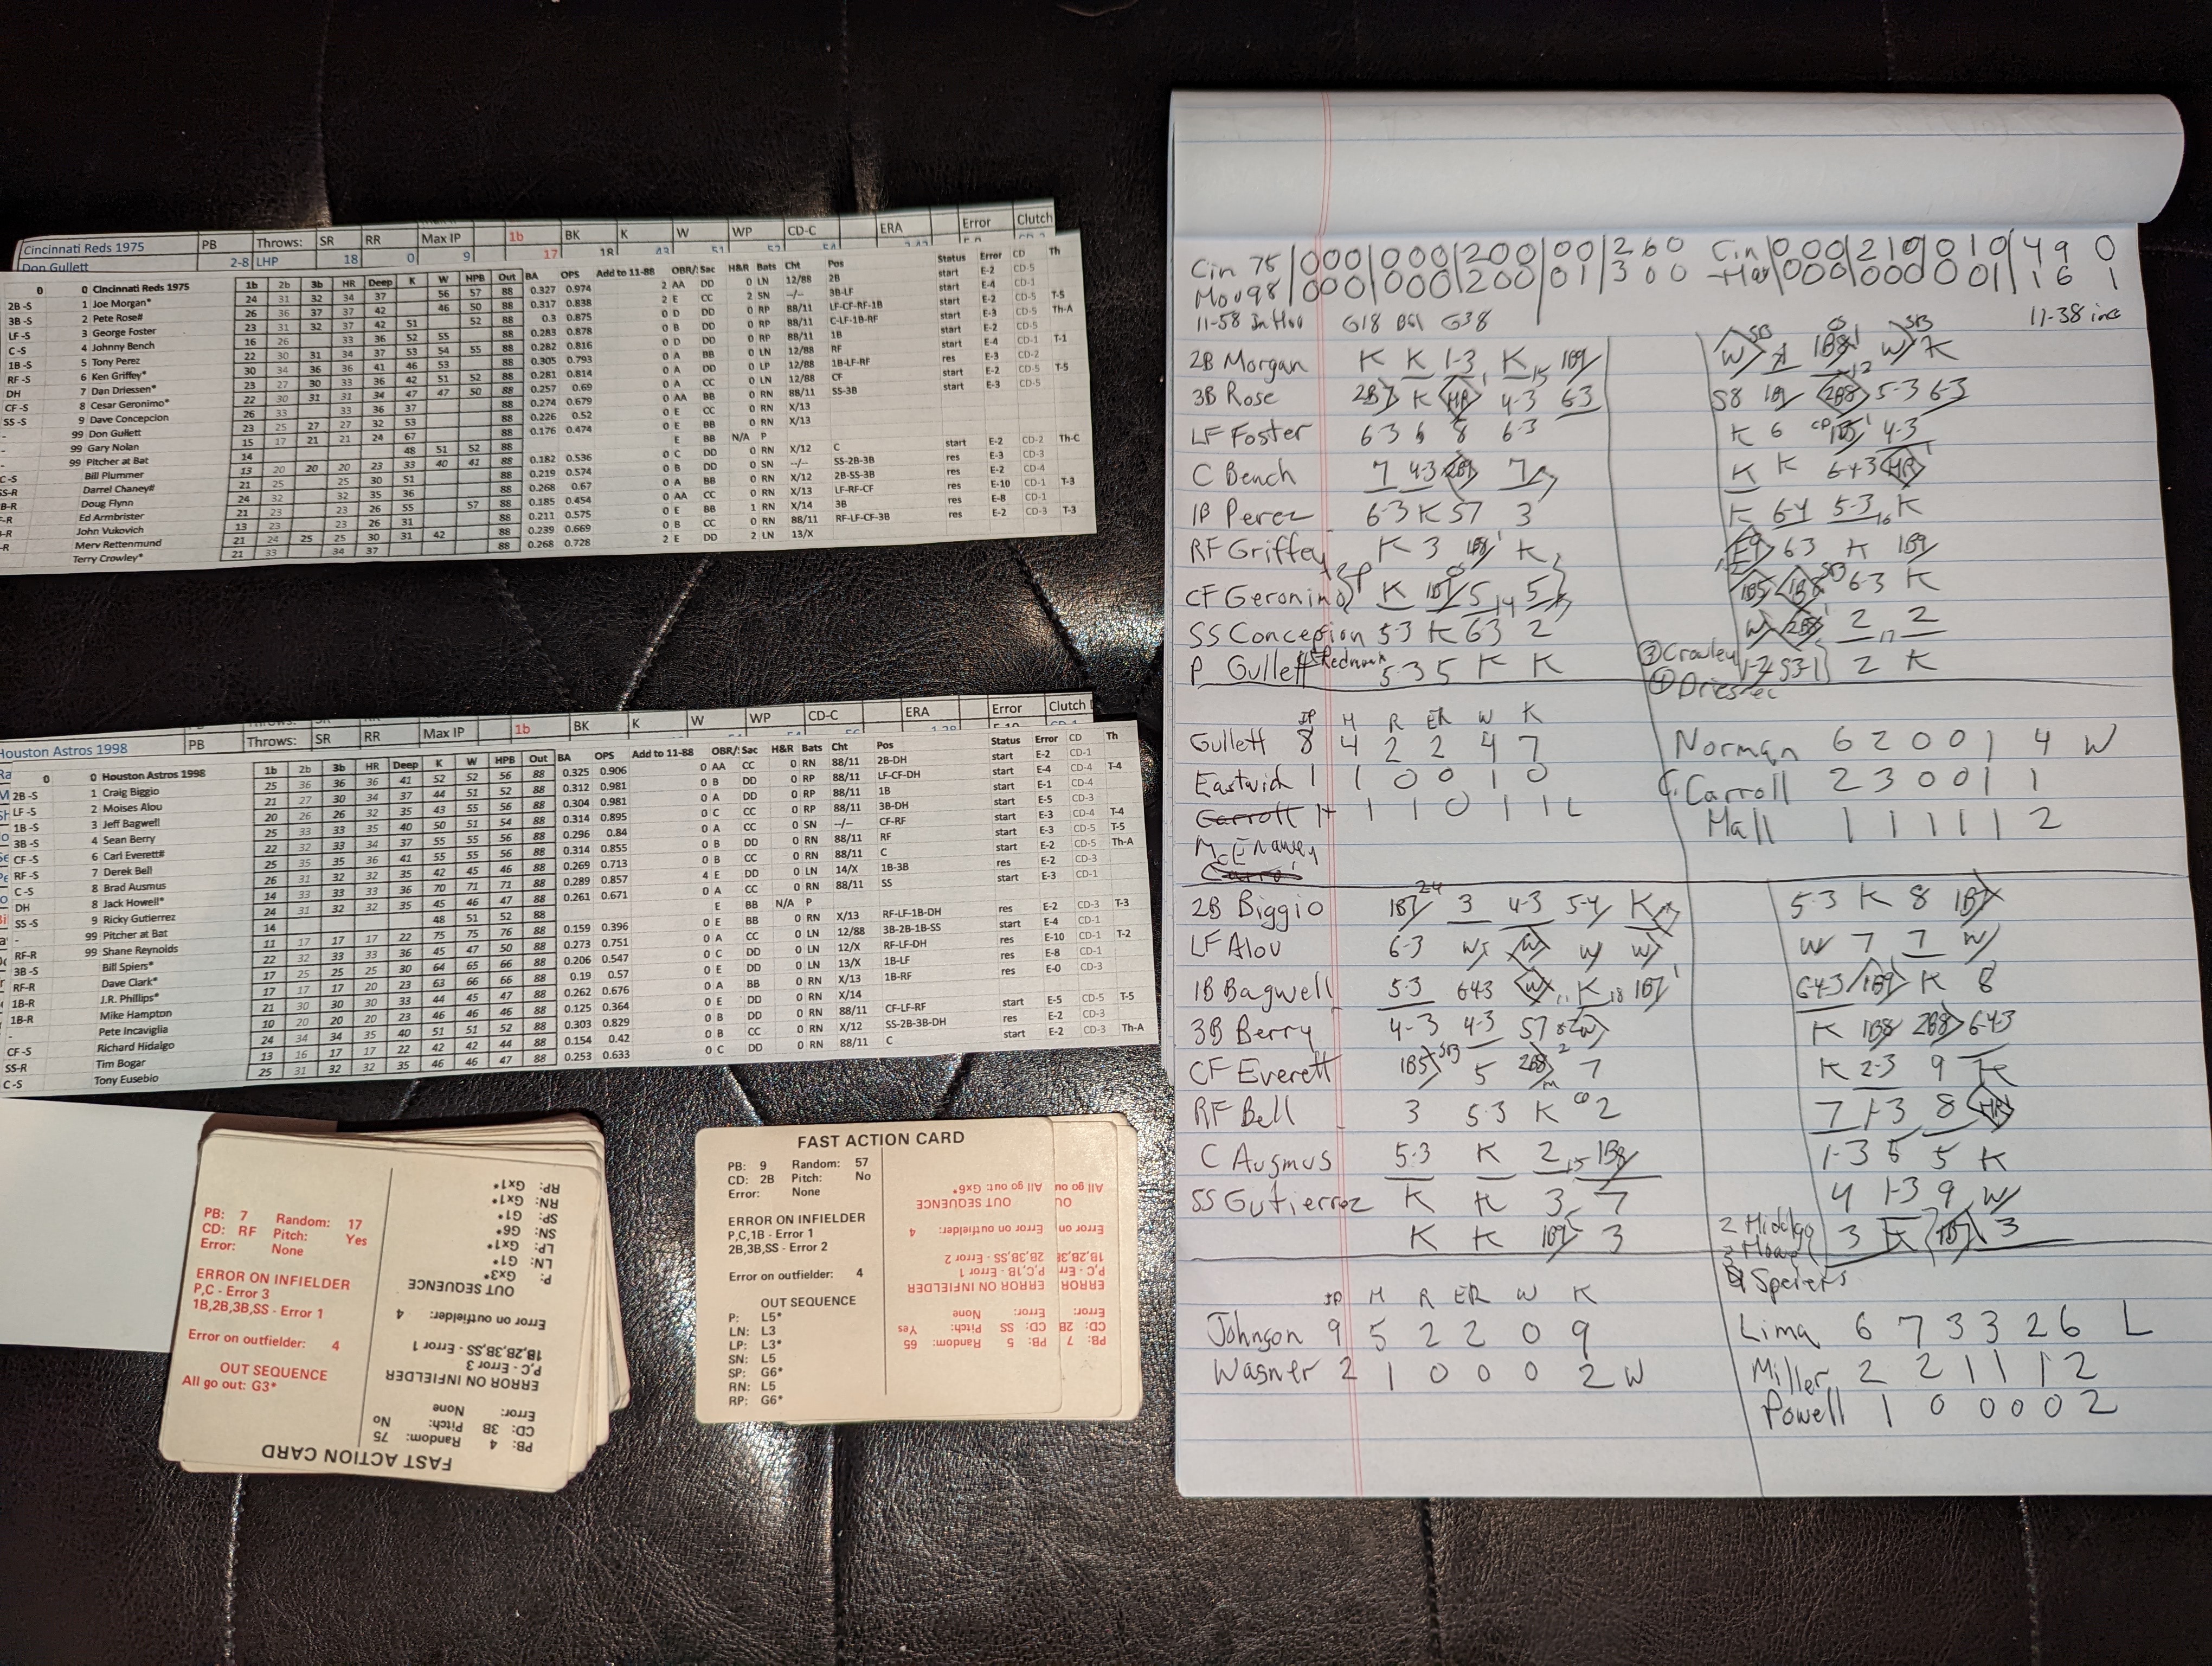 Cincinnati Reds 1975 PB Throws: SR RR Max IP 1b BK K W WP CD-C ERA Error Clutch
Don Gullett 2-8 LHP 18 0 9 17 18 43 51
0 0 Cincinnati Reds 1975 1b 2b 3b HR Deep K W HPB Out BA OPS Add to 11-88 OBR/: Sac H&R Bats Cht Pos Status Error CD Th
2B -S 1 Joe Morgan* 24 31 32 34 37 56 57 88 0.327 0.974 2 AA DD 0 LN 12/88 2B start E-2 CD-5
3B -S 2 Pete Rose# 26 36 37 37 42 46 50 88 0.317 0.838 2 E CC 2 SN --/-- 3B-LF start E-4 CD-1
LF -S 3 George Foster 23 31 32 37 42 51 52 88 0.3 0.875 0 D DD 0 RP 88/11 LF-CF-RF-1B start E-2 CD-5 T-5
C -S 4 Johnny Bench 16 26 33 36 52 55 88 0.283 0.878 0 D DD 0 RP 88/11 C-LF-1B-RF start E-3 CD-5 Th-A
1B -S 5 Tony Perez 22 30 31 34 37 53 54 55 88 0.282 0.816 0 D DD 0 RP 88/11 1B start E-2 CD-5
RF -S 6 Ken Griffey* 30 34 36 36 41 46 53 88 0.305 0.793 0 A BB 0 LN 12/88 RF start E-4 CD-1 T-1
DH 7 Dan Driessen* 23 27 30 33 36 42 51 52 88 0.281 0.814 0 A DD 0 LP 12/88 1B-LF-RF res E-3 CD-2
CF -S 8 Cesar Geronimo* 22 30 31 31 34 47 47 50 88 0.257 0.69 0 A CC 0 LN 12/88 CF start E-2 CD-5 T-5
SS -S 9 Dave Concepcion 26 33 33 36 37 88 0.274 0.679 0 AA BB 0 RN 88/11 SS-3B start E-3 CD-5
- 99 Don Gullett 23 25 27 27 32 53 88 0.226 0.52 0 E CC 0 RN X/13
- 99 Gary Nolan 15 17 21 21 24 67 88 0.176 0.474 0 E BB 0 RN X/13
- 99 Pitcher at Bat 14 48 51 52 88 E BB N/A P
C -S Bill Plummer 13 20 20 20 23 33 40 41 88 0.182 0.536 0 C DD 0 RN X/12 C start E-2 CD-2 Th-C
SS-R Darrel Chaney# 21 25 25 30 51 88 0.219 0.574 0 B DD 0 SN --/-- SS-2B-3B res E-3 CD-3
Doug Flynn 24 32 32 35 36 88 0.268 0.67 0 A BB 0 RN X/12 2B-SS-3B res E-2 CD-4
Ed Armbrister 21 23 23 26 55 57 88 0.185 0.454 0 AA CC 0 RN X/13 LF-RF-CF res E-10 CD-1 T-3
John Vukovich 13 23 23 26 31 88 0.211 0.575 0 E BB 1 RN X/14 3B res E-8 CD-1
Merv Rettenmund 21 24 25 25 30 31 42 88 0.239 0.669 0 B CC 0 RN 88/11 RF-LF-CF-3B res E-2 CD-3 T-3
Terry Crowley* 21 33 34 37 88 0.268 0.728 2 E DD 2 LN 13/X
Houston Astros 1998 PB Throws: SR RR Max IP 1b BK K W WP CD-C ERA Error Clutch
0 0 Houston Astros 1998 1b 2b 3b HR Deep K W HPB Out BA OPS Add to 11-88 OBR/: Sac H&R Bats Cht Pos Status Error CD Th
2B -S 1 Craig Biggio 25 36 36 36 41 52 52 56 88 0.325 0.906 0 AA CC 0 RN 88/11 2B-DH start E-2 CD-1
LF -S 2 Moises Alou 21 27 30 34 37 44 51 52 88 0.312 0.981 0 B DD 0 RP 88/11 LF-CF-DH start E-4 CD-4 T-4
1B -S 3 Jeff Bagwell 20 26 26 32 35 43 55 56 88 0.304 0.981 0 A DD 0 RP 88/11 1B start E-1 CD-4
3B -S 4 Sean Berry 25 33 33 35 40 50 51 54 88 0.314 0.895 0 C CC 0 RP 88/11 3B-DH start E-5 CD-3
CF -S 6 Carl Everett# 22 32 33 34 37 55 55 56 88 0.296 0.84 0 A CC 0 SN --/-- CF-RF start E-3 CD-4 T-4
RF -S 7 Derek Bell 25 35 35 36 41 55 55 56 88 0.314 0.855 0 B DD 0 RN 88/11 RF start E-3 CD-5 T-5
C -S 8 Brad Ausmus 26 31 32 32 35 42 45 46 88 0.269 0.713 0 B CC 0 RN 88/11 C start E-2 CD-5 Th-A
DH 8 Jack Howell* 14 33 33 33 36 70 71 71 88 0.289 0.857 4 E DD 0 LN 14/X 1B-3B res E-2 CD-3
SS -S 9 Ricky Gutierrez 24 31 32 32 35 45 46 47 88 0.261 0.671 0 A CC 0 RN 88/11 SS start E-3 CD-1
- 99 Pitcher at Bat 14 48 51 52 88 E BB N/A P
99 Shane Reynolds 11 17 17 17 22 75 75 76 88 0.159 0.396 0 E BB 0 RN X/13
RF-R
3B -S Bill Spiers* 22 32 33 33 36 45 47 50 88 0.273 0.751 0 A CC 0 LN 12/88 3B-2B-1B-SS
RF-R Dave Clark* 17 25 25 25 30 64 65 66 88 0.206 0.547 0 C DD 0 LN 12/X RF-LF-DH
1B-R J.R. Phillips* 17 17 17 20 23 63 66 66 88 0.19 0.57 0 E DD 0 LN 13/X 1B-LF
Mike Hampton 21 30 30 30 33 44 45 47 88 0.262 0.676
Pete Incaviglia 10 20 20 20 23 46 46 46 88 0.125 0.364
CF -S Richard Hidalgo 24 34 34 35 40 51 51 52 88 0.303 0.829 0 B DD 0 RN 88/11 CF-LF-RF start E-5 CD-5 T-5
SS-R Tim Bogar 13 16 17 17 22 42 42 44 88 0.154 0.42 0 B CC 0 RN X/12 SS-2B-3B-DH res E-2 CD-3
C -S Tony Eusebio 25 31 32 32 35 46 46 47 88 0.253 0.633 0 C DD 0 RN 88/11 C start E-2 CD-3 Th-A
PB: 7 Random: 17
CD: RF Pitch: Yes
Error: None
ERROR ON INFIELDER
P,C - Error 3
1B,2B,3B,SS - Error 1
Error on outfielder: 4
OUT SEQUENCE
All go out: G3*
FAST ACTION CARD
PB: 4 Random: 75
CD: 3B Pitch: No
Error: None
ERROR ON INFIELDER
P,C - Error 3
1B,2B,3B,SS - Error 1
Error on outfielder: 4
OUT SEQUENCE
P: Gx3*
LN: G1*
LP: Gx1*
SN: G6*
SP: G1*
RN: Gx1*
RP: Gx1*
FAST ACTION CARD
PB: 9 Random: 57
CD: 2B Pitch: No
Error: None
ERROR ON INFIELDER
P,C,1B - Error 1
2B,3B,SS - Error 2
Error on outfielder: 4
OUT SEQUENCE
P: L5*
LN: L3
LP: L3*
SN: L5
SP: G6*
RN: L5
RP: G6*
PB: 5 Random: 65
CD: SS Pitch: Yes
Error: None
ERROR ON INFIELDER
P,C,1B - Error 1
2B,3B,SS - Error 2
Error on outfielder: 4
OUT SEQUENCE
All go out: Gx6*
Cin 75 000 000 200 00 2 6 0 Cin 000 210 010 4 9 0
Hou 98 000 000 200 01 3 0 0 Hou 000 000 001 1 6 1
2B Morgan K K 1-3 K 1B9
3B Rose 2B7 K HR 4-3 63 S8 2B8 5-3 6-3
LF Foster 6-3 6 8 6-3 K 6 4-3
C Bench 7 4-3 2B9 7 K K 6-4-3 HR
1B Perez 6-3 K 57 3 K 6-4 5-3 K
RF Griffey K 3 1B8 K E9 63 K 1B9
CF Geronimo K 1B7 5 5 1B5 1B8 6-3 K
SS Concepcion 5-3 K 63 2 W 2B 2 2
P Gullett 5-3 5 K K 2 K
Crowley
IP H R ER W K
Gullett 8 4 2 2 4 7 Norman 6 2 0 0 1 4 W
Eastwick 1 1 0 0 1 0 C. Carroll 2 3 0 0 1 1
Carroll 1+ 1 1 0 1 1 L Hall 1 1 1 1 1 2
McEnaney
2B Biggio 1B7 3 4-3 5-4 K 5-3 K 8 1B7
LF Alou 6-3 W W W W W 7 7 W
1B Bagwell 5-3 643 W K 1B7 643 1B9 K 8
3B Berry 4-3 4-3 57 W K 1B8 2B8 6-4-3
CF Everett 1B5 5 2B8 7 K 2-3 9 K
RF Bell 3 5-3 K 2 7 1-3 8 HR
C Ausmus 5-3 K 2 1B8 1-3 5 5 K
SS Gutierrez K K 3 7 4 1-3 9 W
K K 1B9 3 3 K 1B7 3
IP H R ER W K
Johnson 9 5 2 2 0 9 Lima 6 7 3 3 2 6 L
Wagner 2 1 0 0 0 2 W Miller 2 2 1 1 1 2
Powell 1 0 0 0 0 2